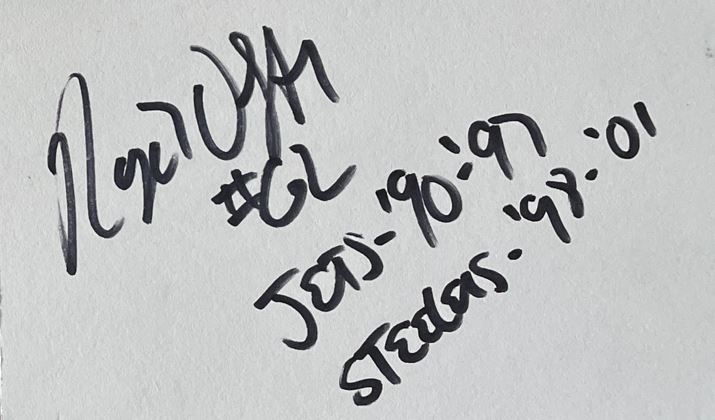 Roger Duffy
#62
JETS-'90-'97
STEELERS-'98-'01